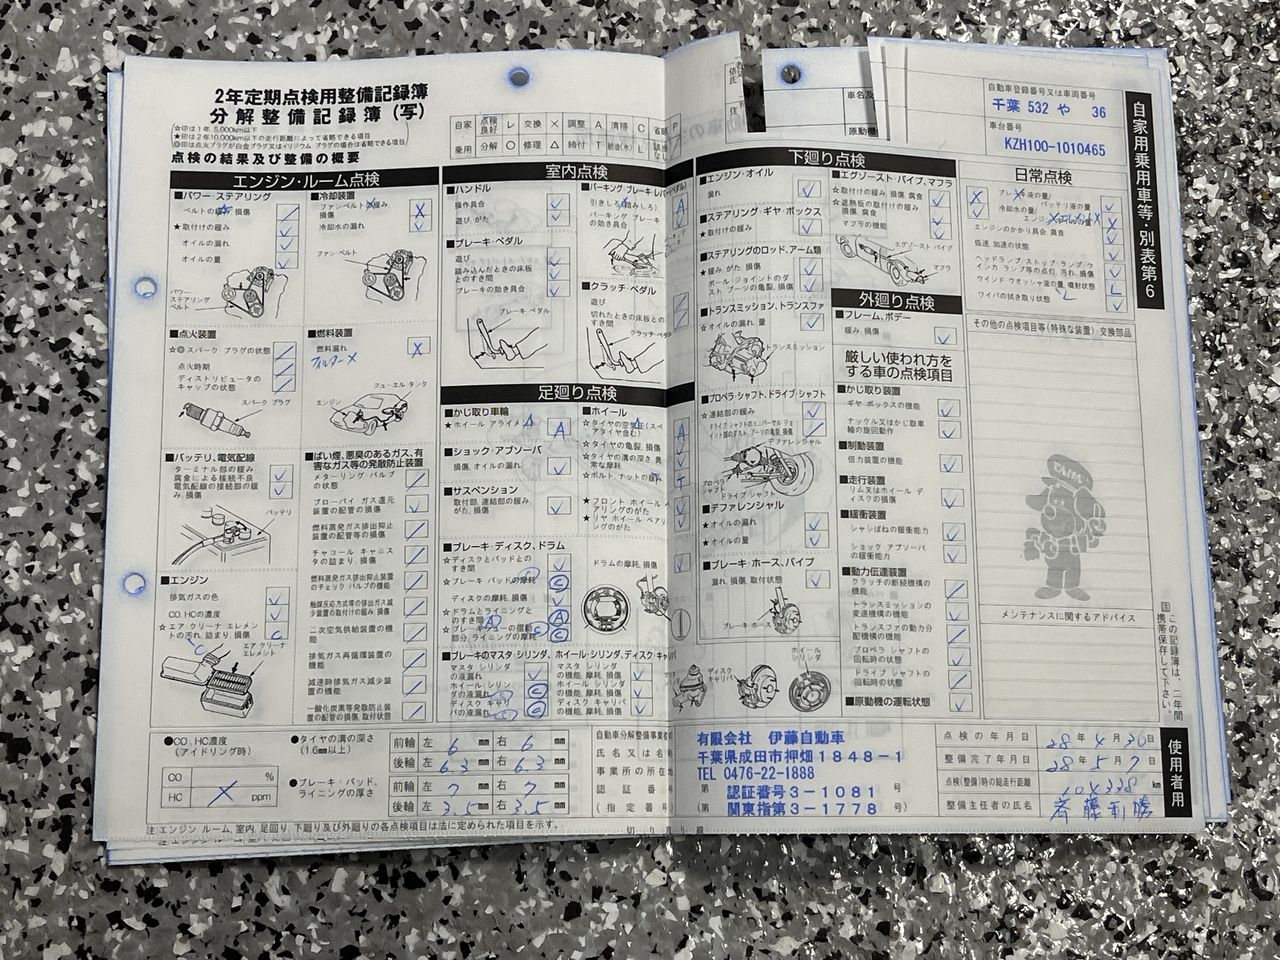 2年定期点検用整備記録簿
分解整備記録簿(写)
☆印は1年、5,000km以下
★印は2年10,000km以下の走行距離によって省略できる項目
点検の結果及び整備の概要
自家 点検良好 レ 交換 × 調整 A 清掃 C 省略 P
乗用 分解 ○ 修理 △ 締付 T 給油(水) L
エンジン・ルーム点検
■パワー・ステアリング
★取付けの緩み
オイルの漏れ
オイルの量
パワーステアリングベルト
■冷却装置
冷却水の漏れ
ファン ベルト
■点火装置
☆◎スパーク プラグの状態
点火時期
ディストリビュータのキャップの状態
スパーク プラグ
■燃料装置
燃料漏れ
フィルター×
フューエル タンク
エンジン
■バッテリ、電気配線
ターミナル部の緩み
腐食による接続不良
電気配線の接続部の緩み、損傷
バッテリ
■エンジン
排気ガスの色
CO、HCの濃度
☆エア クリーナ エレメントの汚れ、詰まり、損傷
エア クリーナ エレメント
■ばい煙、悪臭のあるガス、有害なガス等の発散防止装置
メターリング バルブの状態
ブローバイ ガス還元装置の配管の損傷
燃料蒸発ガス排出抑止装置の配管等の損傷
チャコール キャニスタの詰まり、損傷
燃料蒸発ガス排出抑止装置のチェック バルブの機能
触媒反応方式等の排出ガス減少装置の取付けの緩み、損傷
二次空気供給装置の機能
排気ガス再循環装置の機能
減速時排気ガス減少装置の機能
一酸化炭素等発散防止装置の配管の損傷、取付状態
室内点検
■ハンドル
操作具合
遊び、がた
■ブレーキ・ペダル
遊び
踏み込んだときの床板とのすき間
ブレーキの効き具合
ブレーキ ペダル
パーキング ブレーキの効き具合
■クラッチ・ペダル
遊び
切れたときの床板とのすき間
クラッチ ペダル
足廻り点検
■かじ取り車輪
★ホイール アライメ
■ショック・アブソーバ
損傷、オイルの漏れ
■サスペンション
取付部、連結部の緩み、がた、損傷
■ブレーキ・ディスク、ドラム
☆ディスクとパッドとのすき間
☆ブレーキ パッドの摩耗
ディスクの摩耗、損傷
☆ドラムとライニングとのすき間
☆ブレーキ シューの摺動部分、ライニングの摩耗
ドラムの摩耗、損傷
■ホイール
☆タイヤの亀裂、損傷
★フロント ホイール ベアリングのがた
★リヤ ホイール ベアリングのがた
■ブレーキのマスタ・シリンダ、ホイール・シリンダ、ディスク・キャリパ
マスタ シリンダの液漏れ
マスタ シリンダの機能、摩耗、損傷
ホイール シリンダの機能、摩耗、損傷
ディスク キャリパの機能、摩耗、損傷
下廻り点検
■エンジン・オイル
漏れ
■ステアリング・ギヤ・ボックス
★取付けの緩み
■ステアリングのロッド、アーム類
★緩み、がた、損傷
ボール ジョイントのダスト ブーツの亀裂、損傷
■トランスミッション、トランスファ
☆オイルの漏れ、量
トランスミッション
■プロペラ・シャフト、ドライブ・シャフト
☆連結部の緩み
デファレンシャル
プロペラ シャフト
ドライブ シャフト
■デファレンシャル
★オイルの漏れ
★オイルの量
■ブレーキ・ホース、パイプ
漏れ、損傷、取付状態
ブレーキ ホース
ディスク キャリパ
ホイール シリンダ
■エグゾースト・パイプ、マフラ
☆取付けの緩み、損傷、腐食
☆遮熱板の取付けの緩み、損傷、腐食
マフラの機能
エグゾースト パイプ
マフラ
外廻り点検
■フレーム、ボデー
緩み、損傷
厳しい使われ方をする車の点検項目
■かじ取り装置
ギヤ ボックスの機能
ナックル又はかじ取車輪の旋回動作
■制動装置
倍力装置の機能
■走行装置
リム又はホイール ディスクの損傷
■緩衝装置
シャシばねの緩衝能力
ショック アブソーバの緩衝能力
■動力伝達装置
クラッチの断続機構の機能
トランスミッションの変速機構の機能
トランスファの動力分配機構の機能
プロペラ シャフトの回転時の状態
ドライブ シャフトの回転時の状態
■原動機の運転状態
自動車登録番号又は車両番号
千葉 532 や 36
車台番号
KZH100-1010465
車名及
原動機
日常点検
冷却水の量
バッテリ液の量
エンジンのかかり具合、異音
低速、加速の状態
ヘッドランプ、ストップ ランプ、ウインカ ランプ等の点灯、汚れ、損傷
ウインド ウォッシャ液の量、噴射状態
ワイパの拭き取り状態
その他の点検項目等(特殊な装置)交換部品
てんけんくん
メンテナンスに関するアドバイス
自家用乗用車等・別表第6
この記録簿は、二年間携帯保存して下さい。
使用者用
●CO、HC濃度
(アイドリング時)
CO %
HC × ppm
●タイヤの溝の深さ
(1.6mm以上)
前輪 左 6 mm 右 6 mm
後輪 左 6.3 mm 右 6.3 mm
●ブレーキ・パッド、ライニングの厚さ
前輪 左 7 mm 右 7 mm
後輪 左 3.5 mm 右 3.5 mm
自動車分解整備事業者の
氏名又は名称
事業所の所在地
認証番号
(指定番号)
有限会社 伊藤自動車
千葉県成田市押畑1848-1
TEL 0476-22-1888
認証番号3-1081 号
関東指第3-1778 号)
点検の年月日 28年4月30日
整備完了年月日 28年5月7日
点検(整備)時の総走行距離 km
整備主任者の氏名
注 エンジン ルーム、室内、足廻り、下廻り及び外廻りの各点検項目は法に定められた項目を示す。
切り取り線